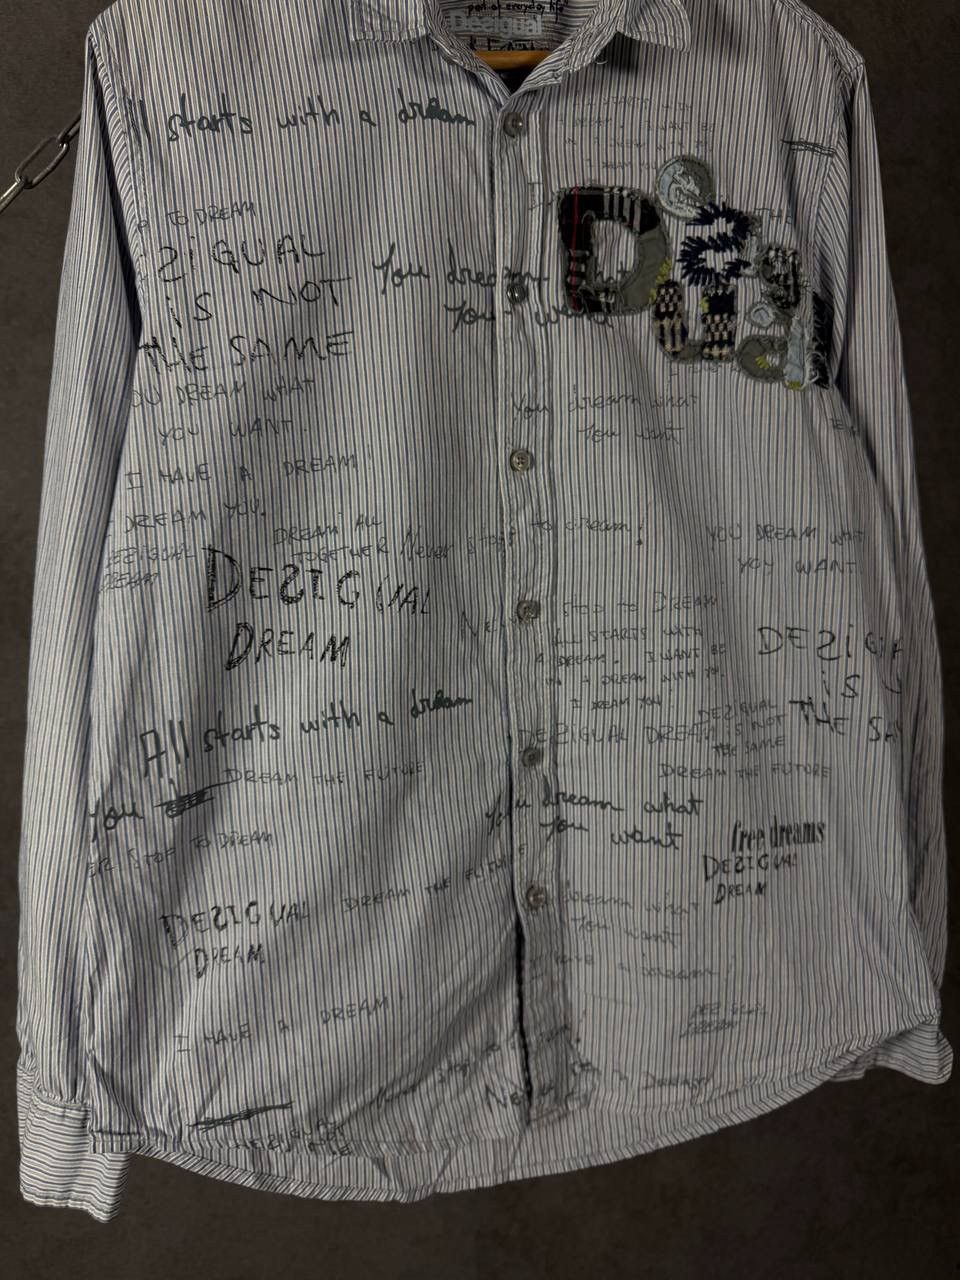 part of everyday life
Desigual
All starts with a dream
ALL STARTS WITH
A DREAM. I WANT BE
IN A DREAM WITH YOU
I DREAM YOU
TO DREAM
DESIGUAL
iS NOT
THE SAME
You dream what
You want
Desigual
THE
YOU DREAM WHAT
YOU WANT.
You dream what
You want
I HAVE A DREAM!
DREAM YOU.
DREAM ALL
TOGETHER
Never stop to dream!
DESIGUAL
DREAM
YOU DREAM WHAT
YOU WANT
DESIGUAL
DREAM
STOP TO DREAM
ALL STARTS WITH
A DREAM. I WANT BE
IN A DREAM WITH YOU
I DREAM YOU
DESIGUA
iS
THE SA
All starts with a dream
DESIGUAL DREAM
DESIGUAL
iS NOT
THE SAME
DREAM THE FUTURE
DREAM THE FUTURE
You
You dream what
You want
free dreams
DESIGUAL
DREAM
STOP TO DREAM
DREAM THE FUTURE
DESIGUAL
DREAM
dream what
You want
I have a dream!
I HAVE A DREAM!
DESIGUAL
DREAM
DESIGUAL